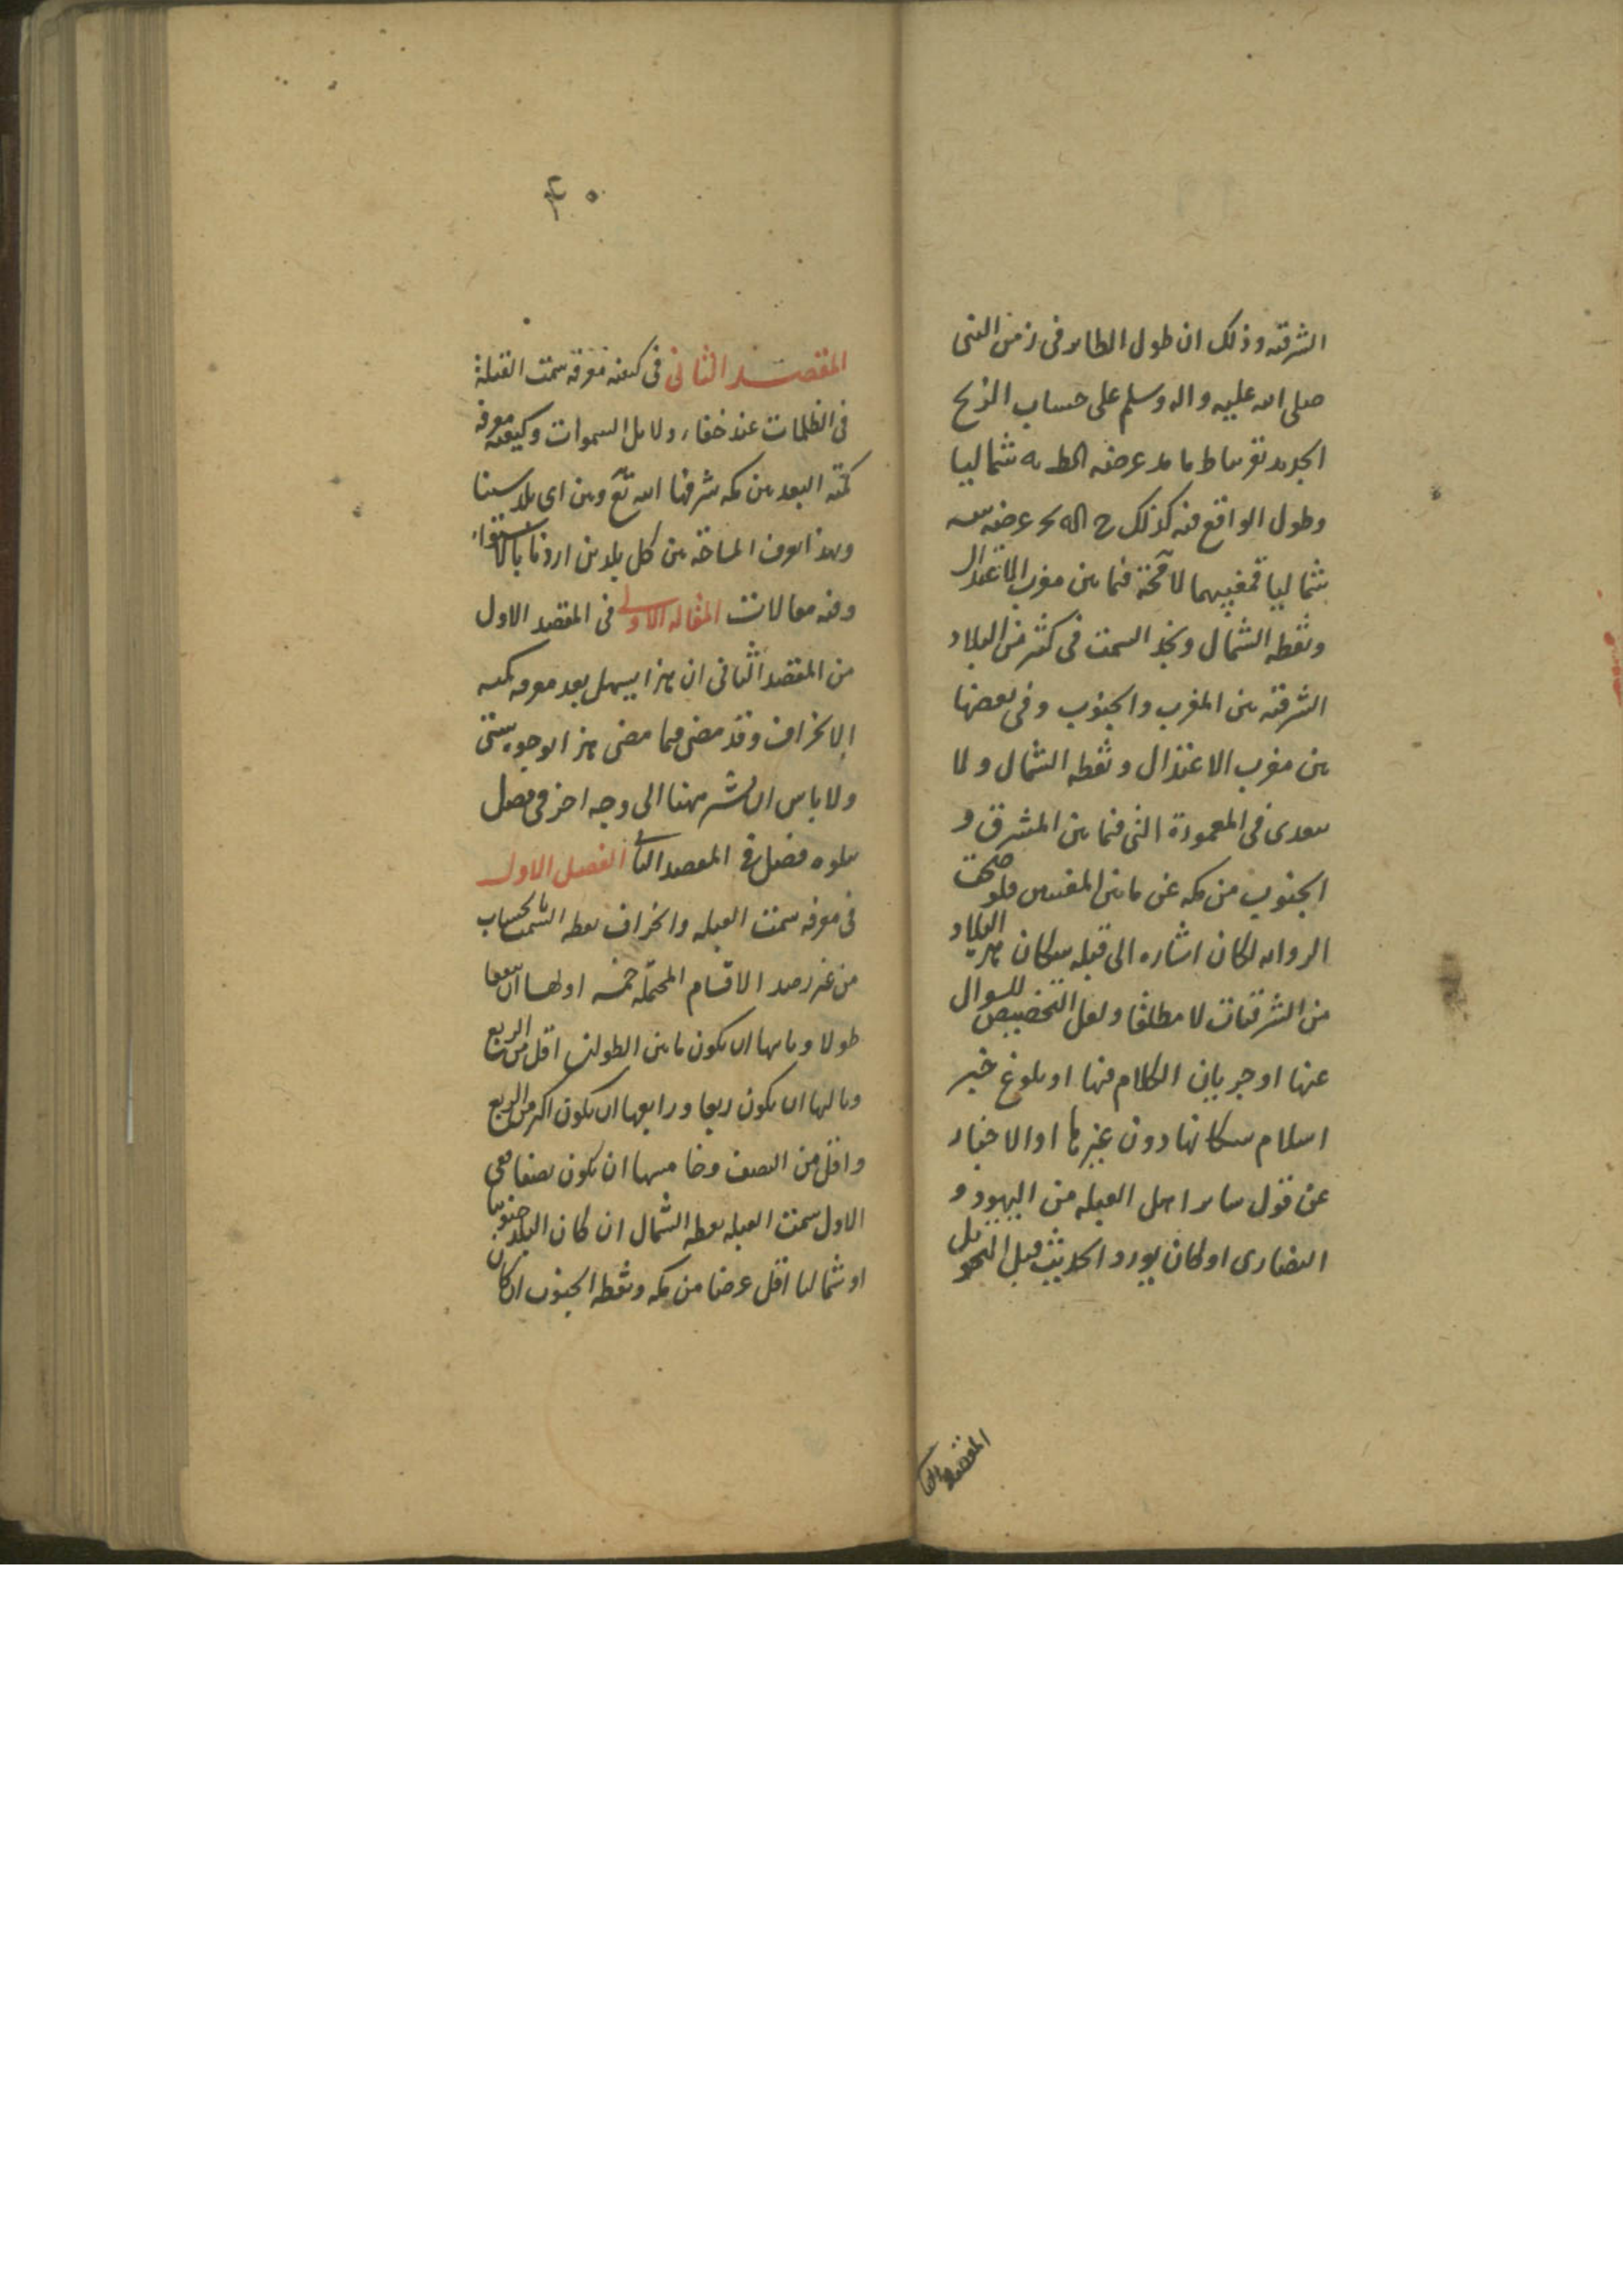 الشرقية وذلك ان طول الطاير فى زمن النبى
صلى الله عليه واله وسلم على حساب الزيج
الجديد تقريبا عرضه شماليا
وطول الواقع فيه كذلك عرضه
شماليا فمغيبهما لا محة فيما بين مغرب الاعتدال
ونقطه الشمال ونجد السمت فى كثير من البلاد
الشرقيه بين المغرب والجنوب وفى بعضها
بين مغرب الاعتدال ونقطه الشمال ولا
يتعدى فى المعمورة التى فيما بين المشرق و
الجنوب من مكه عن ما بين المغيبين فلو صحت
الروايه لكان اشاره الى قبله سكان هذه البلاد
من الشرقيات لا مطلقا ولعل التخصيص للسوال
عنها او جريان الكلام فيها او بلوغ خبر
اسلام سكانها دون غيرها او الاخبار
عن قول ساير اهل القبله من اليهود و
النصارى او كان يورد الحديث قبل التحويل
المقصد الثانى
٤٠
المقصد الثانى فى كيفيه معرفه سمت القبلة
فى الظلمات عند خفاء دلايل السموات وكيفيه معرفه
كمية البعد بين مكه شرفها الله تع وبين اى بلد شينا
وبهذا يعرف المساحة بين كل بلدين اردنا بالاستواء
وفيه مقالات المقاله الاولى فى المقصد الاول
من المقصد الثانى ان هذا يسهل بعد معرفه كميه
الانحراف وقد مضى فيما مضى هذا بوجوه شتى
ولا باس ان نشير ههنا الى وجه اخر فى فصل
يتلوه فصل فى المقصد الثانى الفصل الاول
فى معرفه سمت القبله وانحراف نقطه السمت بالحساب
من غير رصد الاقسام المحتمله خمسه اولها ان يتفقا
طولا وثانيها ان يكون ما بين الطولين اقل من الربع
وثالثها ان يكون ربعا ورابعها ان يكون اكثر من الربع
واقل من النصف وخامسها ان يكون نصفا ففى
الاول سمت القبله نقطه الشمال ان كان البلد جنوبيا
او شماليا اقل عرضا من مكه ونقطه الجنوب ان كان